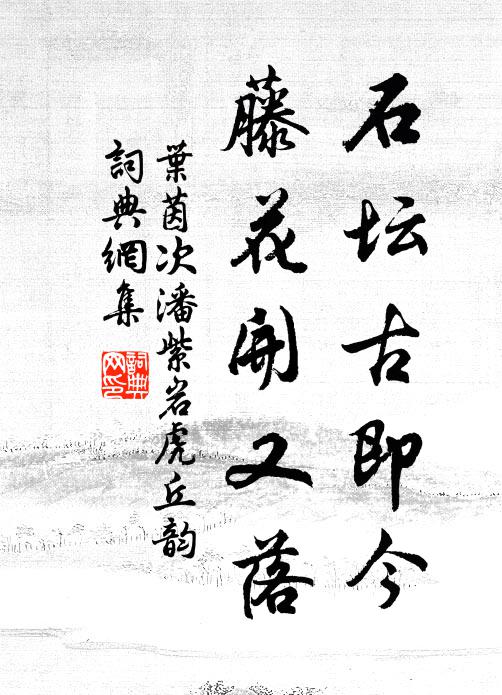 石坛古即今
藤花開又落
葉茵次潘紫岩虎丘韵
詞典網集
詞典
网印